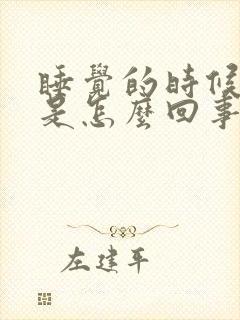 睡覺的時候
是怎麼回事
左建平